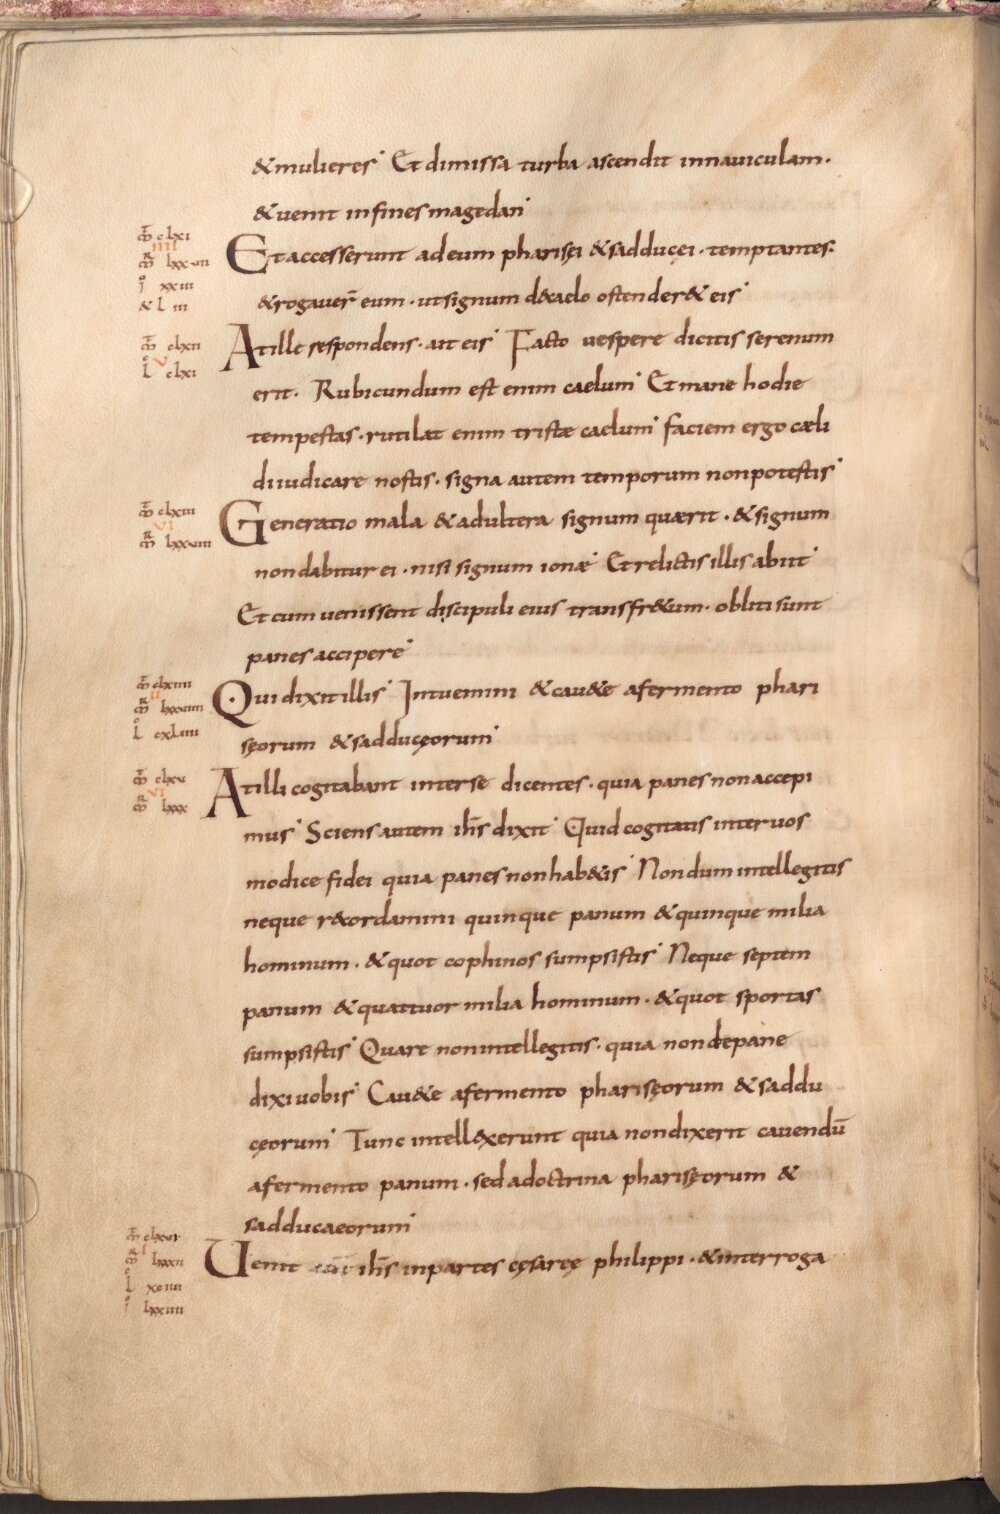 & mulieres. Et dimissa turba ascendit in naviculam.
& venit in fines magedan
m̄ clxi
Et accesserunt ad eum pharisęi & sadducęi. temptantes.
iiii
m̄ lxxvii
j xxiii
& rogaver̄ eum. ut signum d& caelo ostender& eis
& l iii
m̄ clxii
At ille respondens. ait eis Facto vespere dicitis serenum
v
l clxi
erit. Rubicundum est enim caelum Et mane hodie
tempestas. rutilat enim triste caelum faciem ergo cæli
diiudicare nostis. signa autem temporum non potestis
m̄ clxiii
Generatio mala & adultera signum quærit. & signum
vi
m̄ lxxviii
non dabitur ei. nisi signum ionæ Et relictis illis abiit
Et cum venissent discipuli eius trans fr&um. obliti sunt
panes accipere
m̄ clxiiii
Qui dixit illis Intuemini & cav&e a fermento phari
ii
m̄ lxxviiii
l cxliiii
sęorum & sadducęorum
m̄ clxv
At illi cogitabant inter se dicentes. quia panes non accepi
vi
m̄ lxxx
mus Sciens autem ih̄s dixit Quid cogitatis inter vos
modice fidei quia panes non hab&is Nondum intellegitis
neque r&ordamini quinque panum & quinque milia
hominum. & quot cophinos sumpsistis Neque septem
panum & quattuor milia hominum. & quot sportas
sumpsistis Quare non intellegitis. quia non de pane
dixi vobis Cav&e a fermento pharisęorum & saddu
cęorum Tunc intell&xerunt quia non dixerit cavendū
a fermento panum. sed a doctrina pharisęorum &
sadducaeorum
m̄ clxvi
Uenit ih̄s in partes cęsaręę philippi. & interroga
i
m̄ lxxxii
l xciiii
j lxxiiii